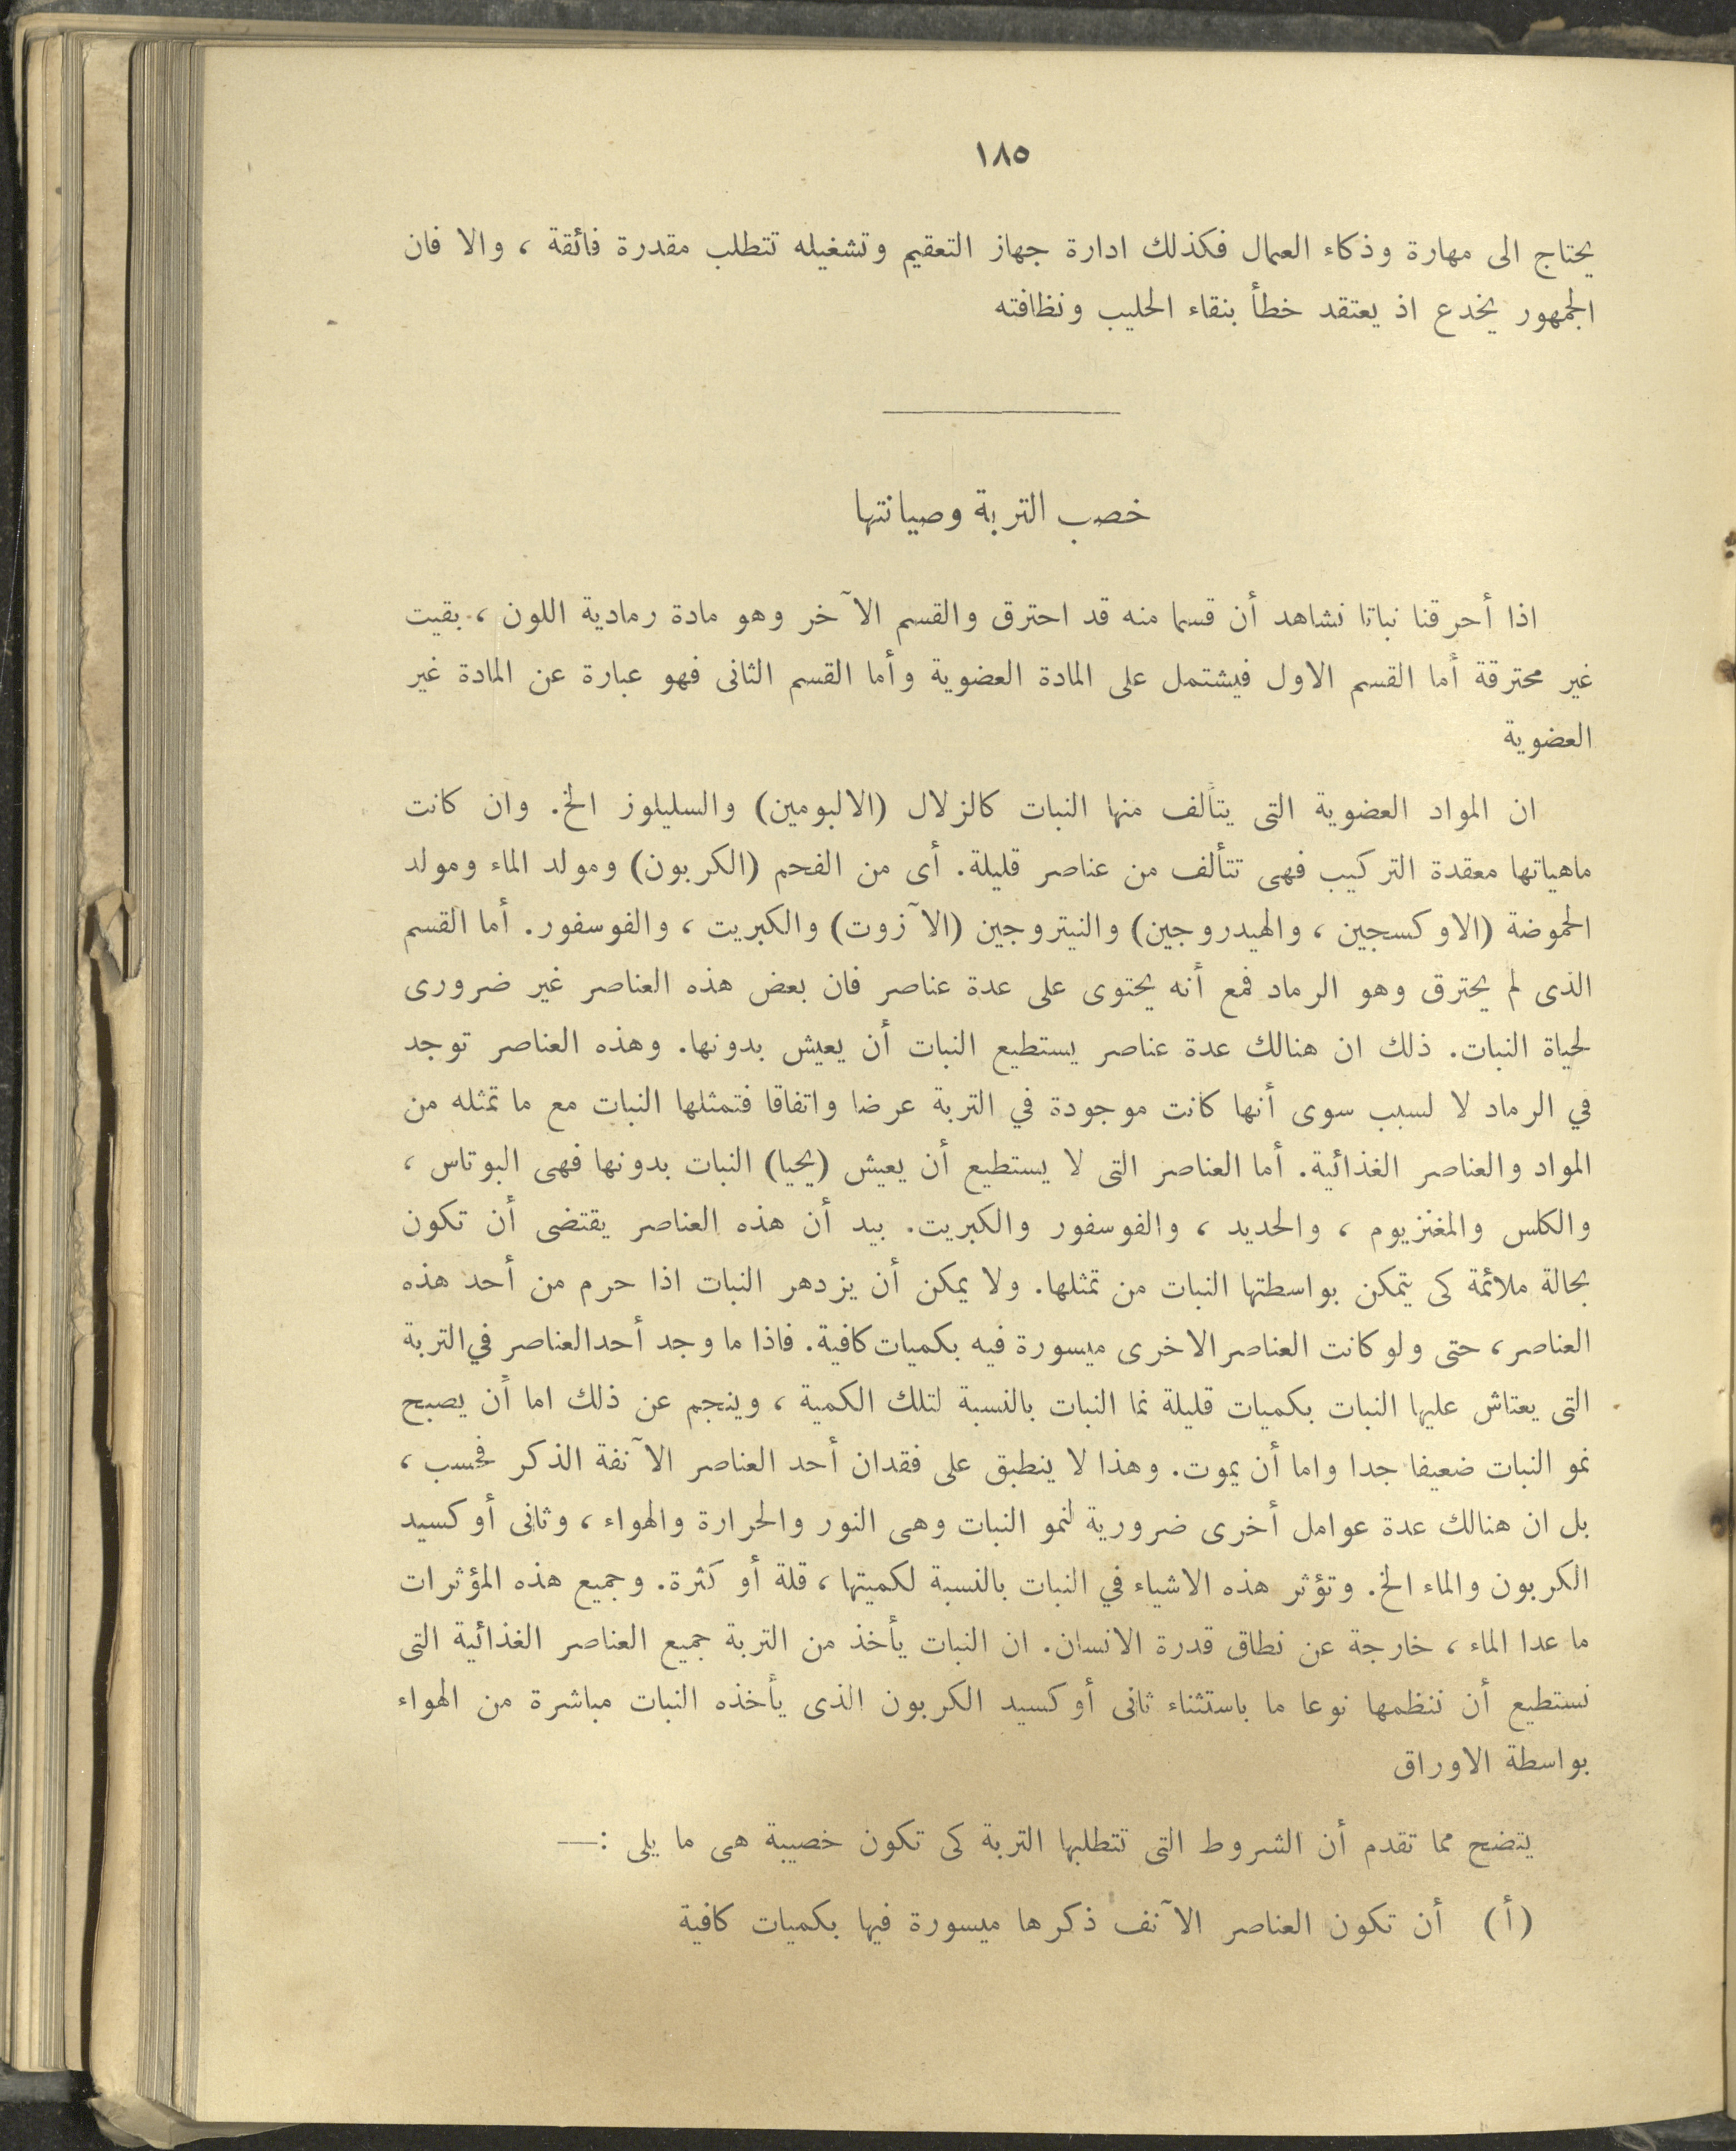 ١٨٥
يحتاج الى مهارة وذكاء العمال فكذلك ادارة جهاز التعقيم وتشغيله تتطلب مقدرة فائقة ، والا فان
الجمهور يخدع اذ يعتقد خطأ بنقاء الحليب ونظافته
خصب التربة وصيانتها
اذا أحرقنا نباتا نشاهد أن قسما منه قد احترق والقسم الآخر وهو مادة رمادية اللون ، بقيت
غير محترقة أما القسم الاول فيشتمل على المادة العضوية وأما القسم الثانى فهو عبارة عن المادة غير
العضوية
ان المواد العضوية التى يتألف منها النبات كالزلال (الالبومين) والسليلوز الخ. وان كانت
ماهياتها معقدة التركيب فهى تتألف من عناصر قليلة. أى من الفحم (الكربون) ومولد الماء ومولد
الحموضة (الاوكسجين ، والهيدروجين) والنيتروجين (الآزوت) والكبريت ، والفوسفور. أما القسم
الذى لم يحترق وهو الرماد فمع أنه يحتوى على عدة عناصر فان بعض هذه العناصر غير ضرورى
لحياة النبات. ذلك ان هنالك عدة عناصر يستطيع النبات أن يعيش بدونها. وهذه العناصر توجد
في الرماد لا لسبب سوى أنها كانت موجودة في التربة عرضا واتفاقا فتمثلها النبات مع ما تمثله من
المواد والعناصر الغذائية. أما العناصر التى لا يستطيع أن يعيش (يحيا) النبات بدونها فهى البوتاس ،
والكلس والمغنزيوم ، والحديد ، والفوسفور والكبريت. بيد أن هذه العناصر يقتضى أن تكون
بحالة ملائمة كى يتمكن بواسطتها النبات من تمثلها. ولا يمكن أن يزدهر النبات اذا حرم من أحد هذه
العناصر ، حتى ولو كانت العناصر الاخرى ميسورة فيه بكميات كافية. فاذا ما وجد أحد العناصر في التربة
التى يعتاش عليها النبات بكميات قليلة نما النبات بالنسبة لتلك الكمية ، وينجم عن ذلك اما أن يصبح
نمو النبات ضعيفا جدا واما أن يموت. وهذا لا ينطبق على فقدان أحد العناصر الآنفة الذكر فحسب ،
بل ان هنالك عدة عوامل أخرى ضرورية لنمو النبات وهى النور والحرارة والهواء ، وثانى أوكسيد
الكربون والماء الخ. وتؤثر هذه الاشياء في النبات بالنسبة لكميتها ، قلة أو كثرة. وجميع هذه المؤثرات
ما عدا الماء ، خارجة عن نطاق قدرة الانسان. ان النبات يأخذ من التربة جميع العناصر الغذائية التى
نستطيع أن ننظمها نوعا ما باستثناء ثانى أوكسيد الكربون الذى يأخذه النبات مباشرة من الهواء
بواسطة الاوراق
يتضح مما تقدم أن الشروط التى تتطلبها التربة كى تكون خصيبة هى ما يلى :—
(أ) أن تكون العناصر الآنف ذكرها ميسورة فيها بكميات كافية